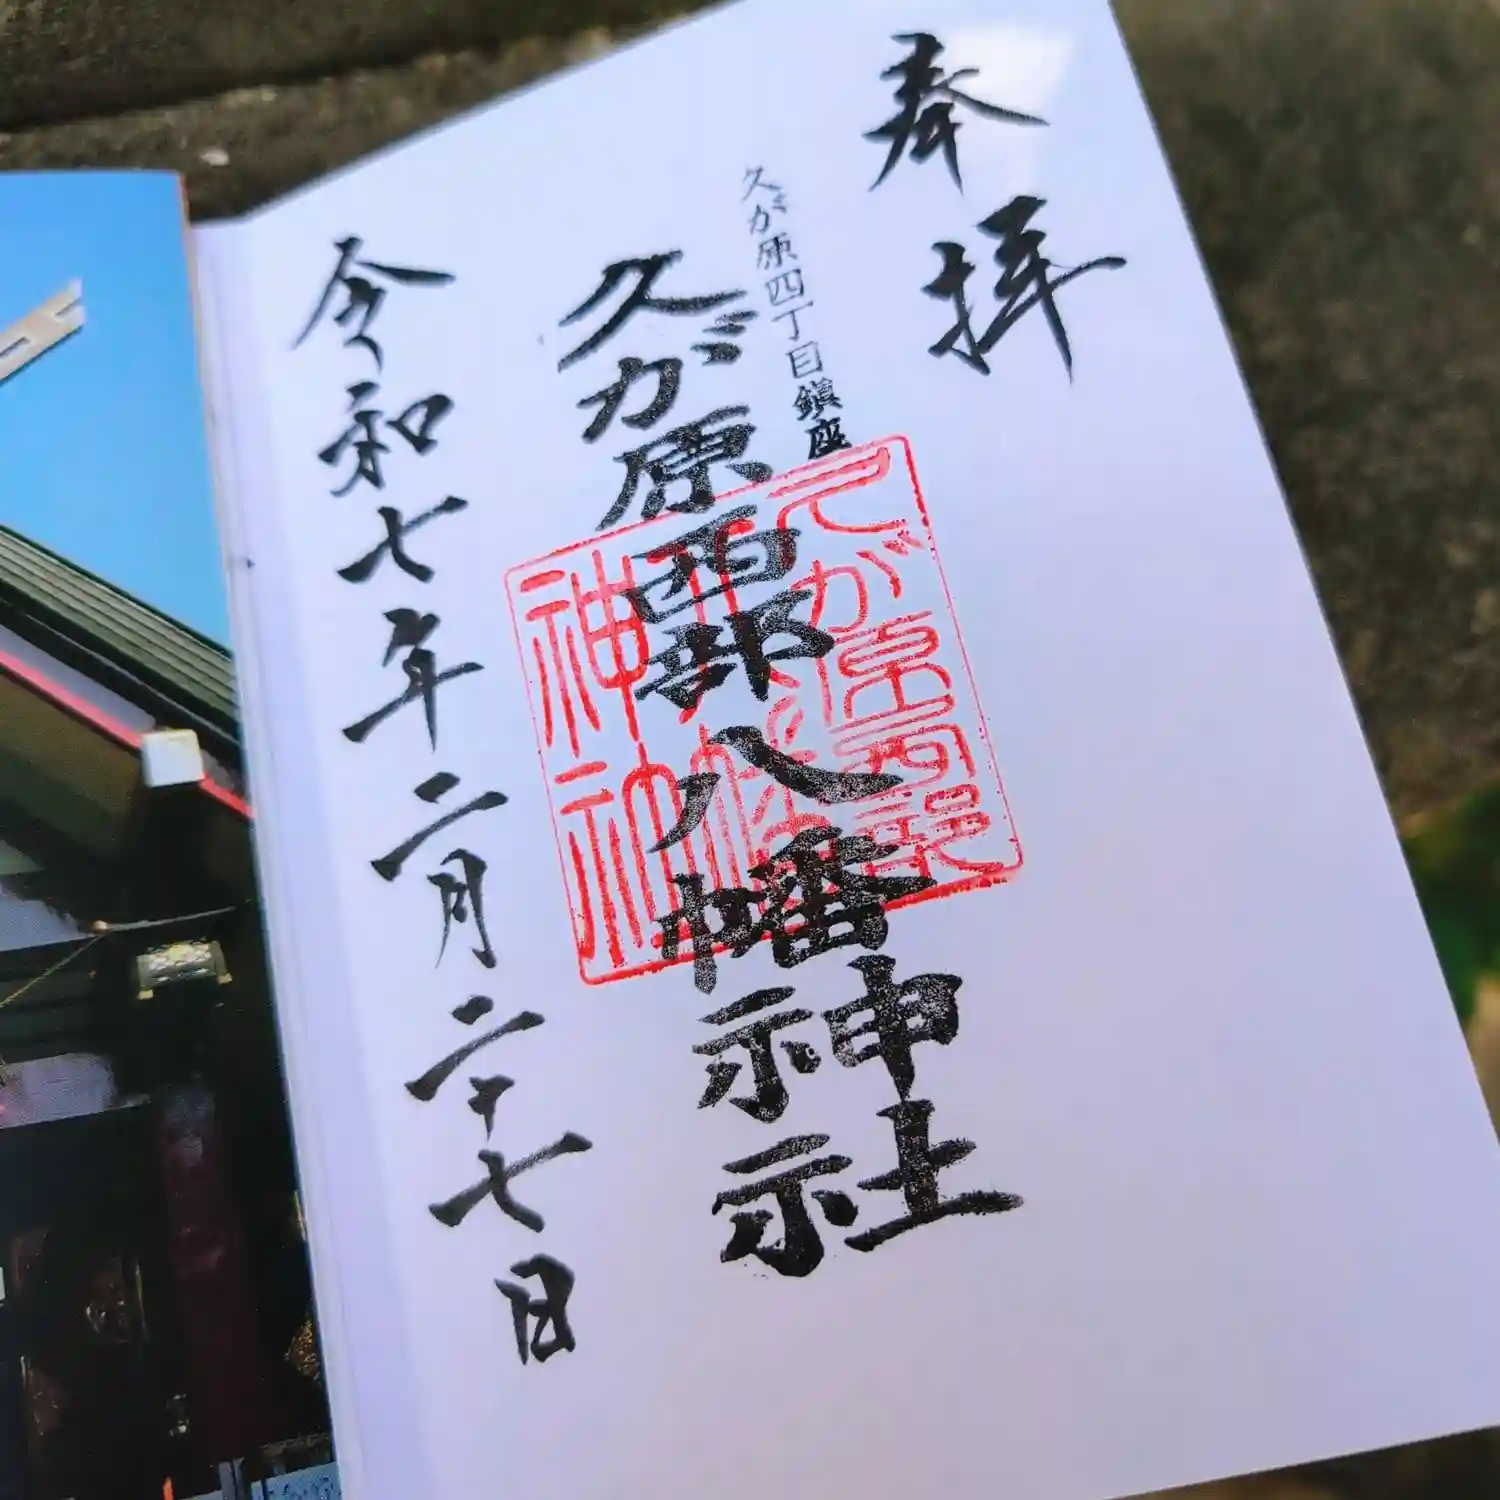 奉拝
久が原四丁目鎮座
久が原西部八幡神社
久が原西部
八幡
神社
令和七年二月二十七日